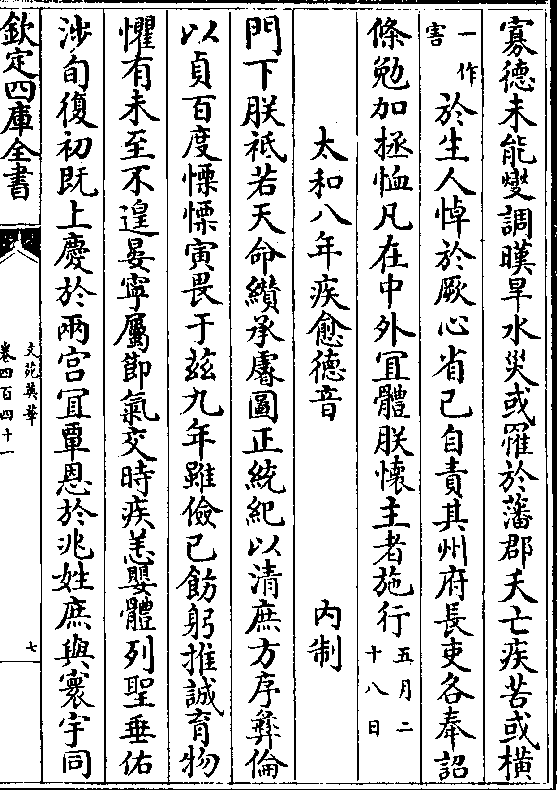 寡德未能燮調暵旱水災或罹於藩郡夭亡疾苦或橫
一作害於生人悼於厥心省己自責其州府長吏各奉詔
條勉加拯恤凡在中外宜體朕懷主者施行五月二十八日
太和八年疾愈德音 內制
門下朕祗若天命纘承睿圖正統紀以清庶方序彝倫
以貞百度慄慄寅畏于茲九年雖儉己飭躬推誠育物
懼有未至不遑晏寧屬節氣交時疾恙嬰體列聖垂佑
涉旬復初既上慶於兩宮宜覃恩於兆姓庶與寰宇同
欽定四庫全書
文苑英華
卷四百四十一
七